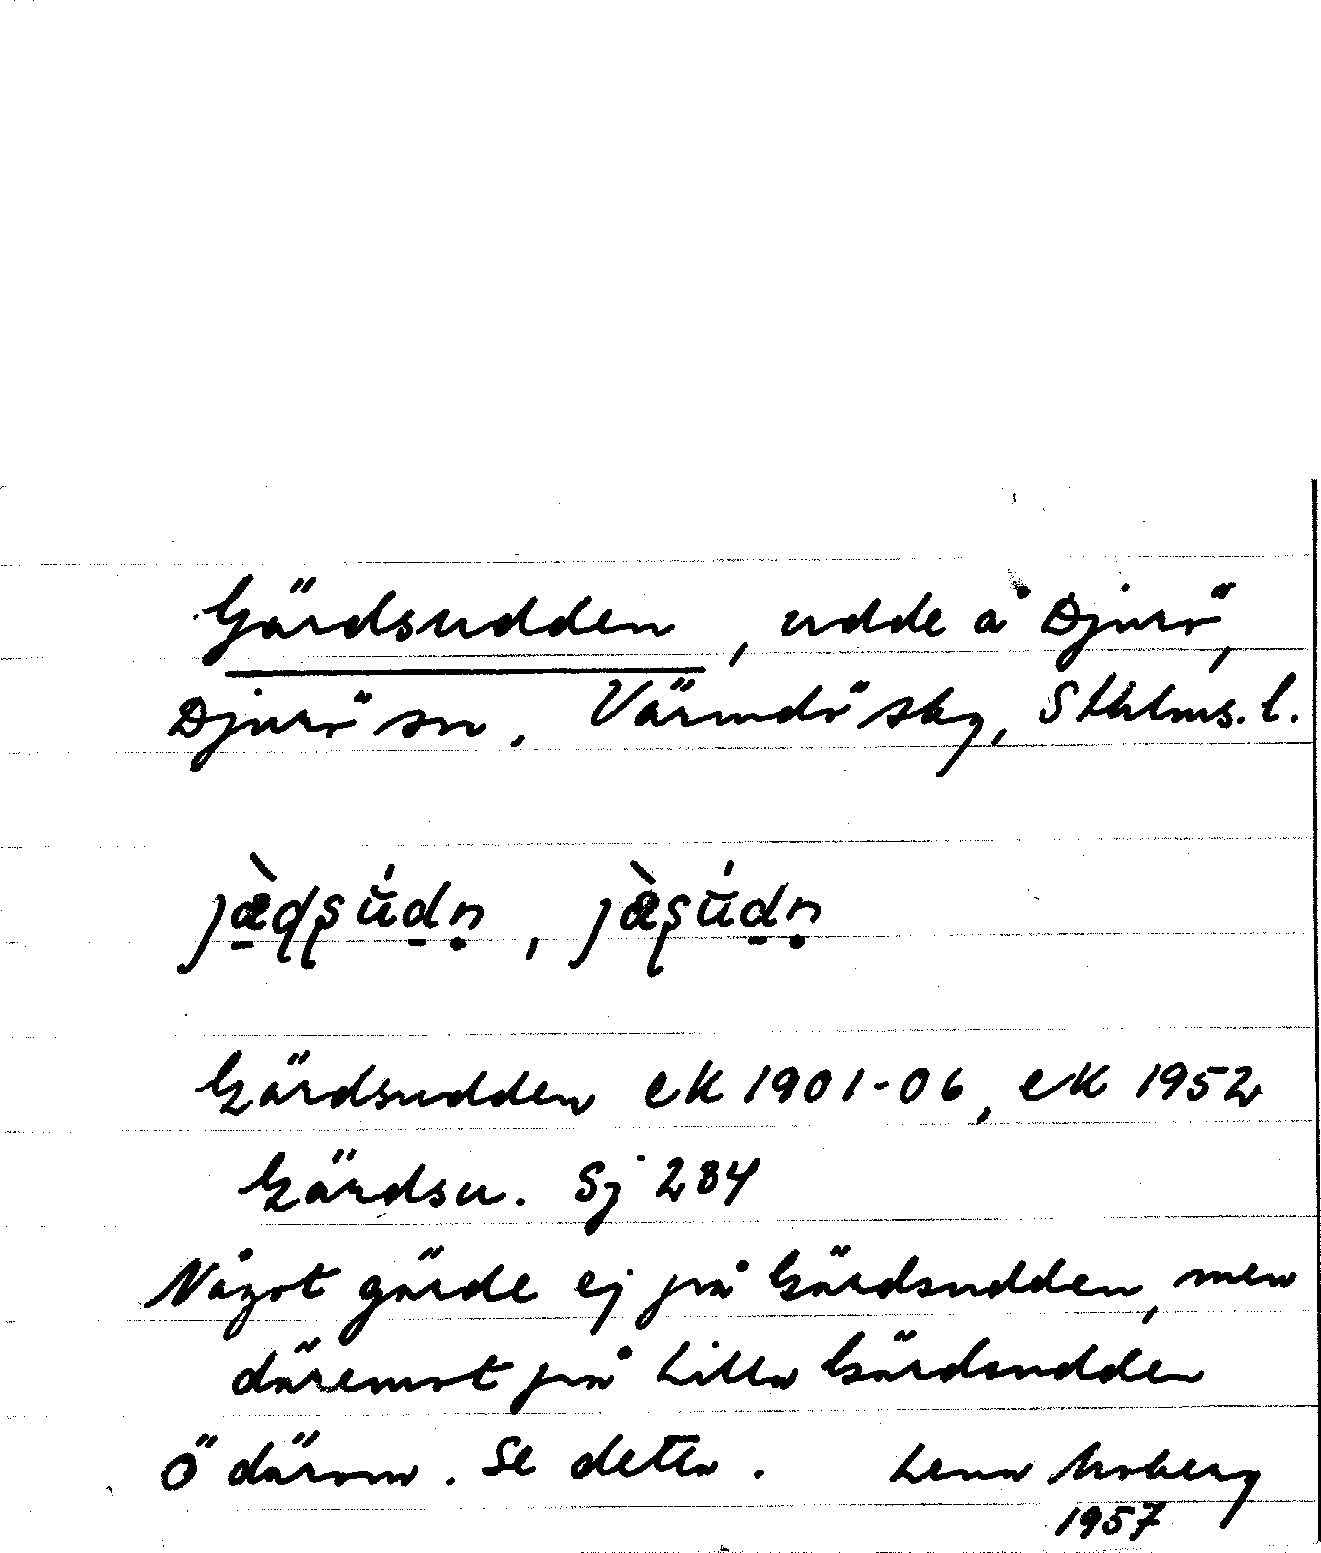 Gärdsudden, udde å Djurö,
Djurö sn, Värmdö skg, Sthlms. l.
jæ̀ḍṣŭ́dṇ, jæ̀ṣŭ́dṇ
Gärdsudden EK 1901-06, EK 1952
Gärdsu. Sj 284
Något gärde ej på Gärdsudden, men
däremot på Lilla Gärdsudden
Ö därom. Se detta. Lena Moberg
1957